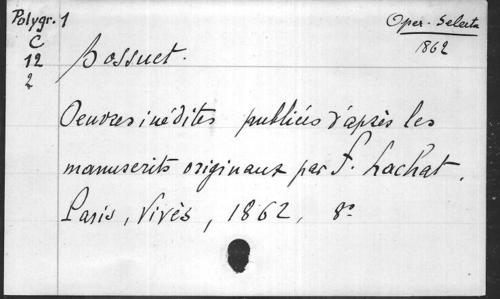 Polygr. 1
C
12
2
Oper. Selecta
1862
Bossuet.
Oeuvres inédites publiées d'après les
manuscrits originaux par F. Lachat.
Paris, Vivès, 1862, 8º